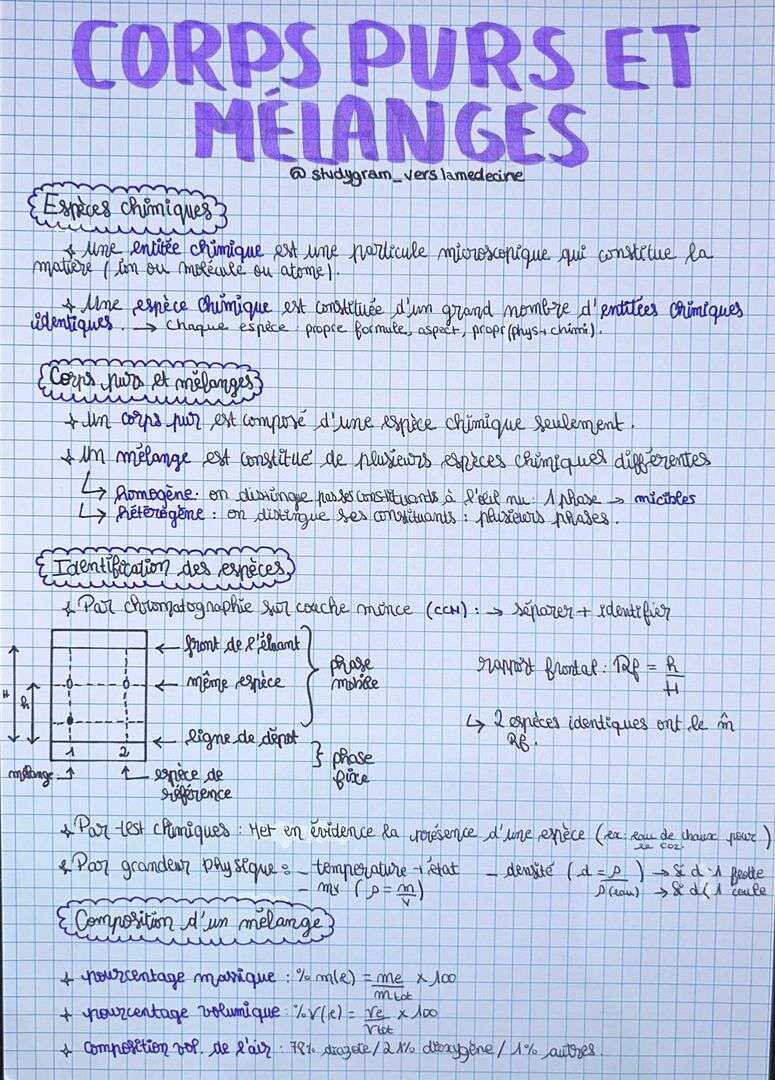 CORPS PURS ET
MÉLANGES
@ studygram_vers lamedecine
Espèces chimiques
Une entitée chimique est une particule microscopique qui constitue la
matière (ion ou molécule ou atome).
Une espèce chimique est constituée d'un grand nombre d'entitées chimiques
identiques. → chaque espèce : propre formule, aspect, propr(phys+chimi).
Corps purs et mélanges
Un corps pur est composé d'une espèce chimique seulement.
Un mélange est constitué de plusieurs espèces chimiques différentes
↳ homogène: on distingue pas ses constituants à l'œil nu: 1 phase → micibles
↳ hétérogène : on distingue ses constituants : plusieurs phases.
Identification des espèces
Par chromatographie sur couche mince (CCM) : → séparer + identifier
← front de l'éluant
← même espèce
phase
mobile
H
h
← ligne de dépôt
phase
fixe
1 2
mélange
espèce de
référence
rapport frontal : Rf = h/H
↳ 2 espèces identiques ont le m̂
Rf.
Par test chimiques : Met en évidence la présence d'une espèce (ex: eau de chaux pour)
le CO2
Par grandeur physique : - température → état - densité (d = ρ/ρ(eau)) → si d 1 flotte
- mv (ρ = m/v) → si d 1 coule
Composition d'un mélange
pourcentage massique : % m(e) = me/mtot × 100
pourcentage volumique : % V(e) = Ve/Vtot × 100
composition vol. de l'air : 78% diazote / 21% dioxygène / 1% autres.